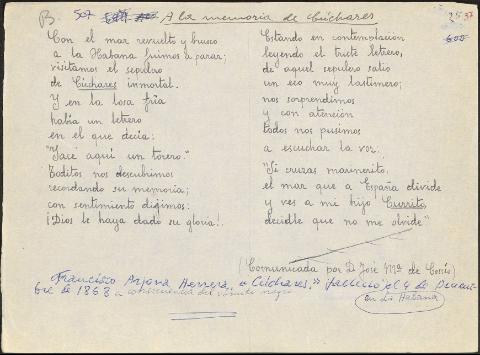 B. 507
A la memoria de Cúchares
2537
600
Con el mar revuelto y brusco
a la Habana fuimos a parar;
visitamos el sepulcro
de Cúchares inmortal.
Y en la losa fría
había un letrero
en el que decía:
"Yace aquí un torero."
Toditos nos descubrimos
recordando su memoria;
con sentimiento digimos:
¡Dios le haya dado su gloria!.
Estando en contemplación
leyendo el triste letrero,
de aquel sepulcro salió
un eco muy lastimero;
nos sorprendimos
y con atención
todos nos pusimos
a escuchar la voz:
"Si cruzas marinerito,
el mar que a España divide
y ves a mi hijo Currito
decidle que no me olvide"
(Comunicada por D. José Mª de Cossío)
Francisco Arjona Herrera, "Cúchares," falleció el 4 de Diciem-
bre de 1868 a consecuencia del vómito negro
en La Habana